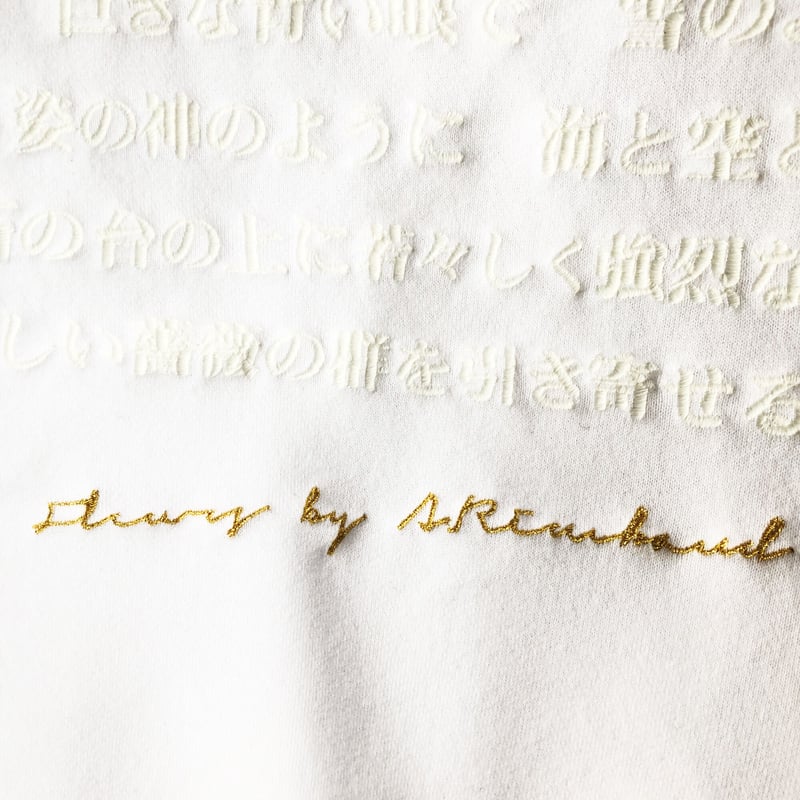 きな青い眼で 雪の
姿の神のように 海と空と
の台の上に若々しく強烈な
しい薔薇の群を引き寄せる
by A.Rimbaud